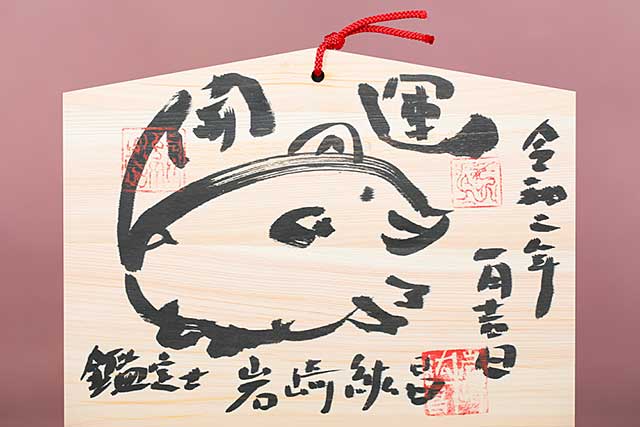 開運
令和二年
一月吉日
鑑定士 岩崎紘昌